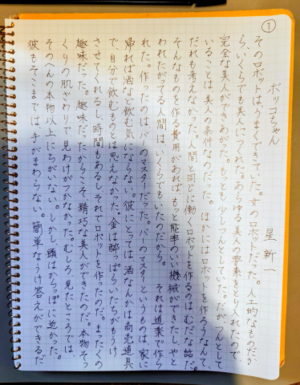 ①
ボッコちゃん
星 新一
そのロボットは、うまくできていた。女のロボットだった。人工的なものだか
ら、いくらでも美人につくれた。あらゆる美人の要素をとり入れたので、
完全な美人ができあがった。もっとも、少しつんとしていた。だが、つんとして
いることは、美人の条件なのだった。ほかにはロボットを作ろうなんて、
だれも考えなかった。人間と同じに働くロボットを作るのは、むだな話だ。
そんなものを作る費用があれば、もっと能率のいい機械ができたし、やと
われたがっている人間は、いくらもいたのだから。それは道楽で作ら
れた。作ったのは、バーのマスターだった。バーのマスターというものは、家に
帰れば酒など飲む気にならない。彼にとっては、酒なんかは商売道具
で、自分で飲むものとは思えなかった。金は酔っぱらいたちがもうけ
させてくれるし、時間もあるし、それでロボットを作ったのだ。まったくの
趣味だった。趣味だったからこそ、精巧な美人ができたのだ。本物そっ
くりの肌ざわりで、見わけがつかなかった。むしろ、見たところでは、
そのへんの本物以上にちがいない。しかし、頭はからっぽに近かった。
彼もそこまでは手がまわらない。簡単なうけ答えができるだ